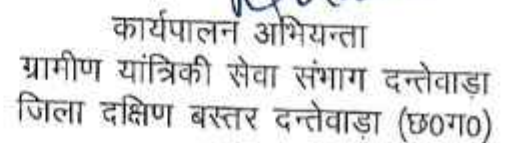 कार्यपालन अभियन्ता
ग्रामीण यांत्रिकी सेवा संभाग दन्तेवाडा
जिला दक्षिण बस्तर दन्तेवाडा (छ०ग०)